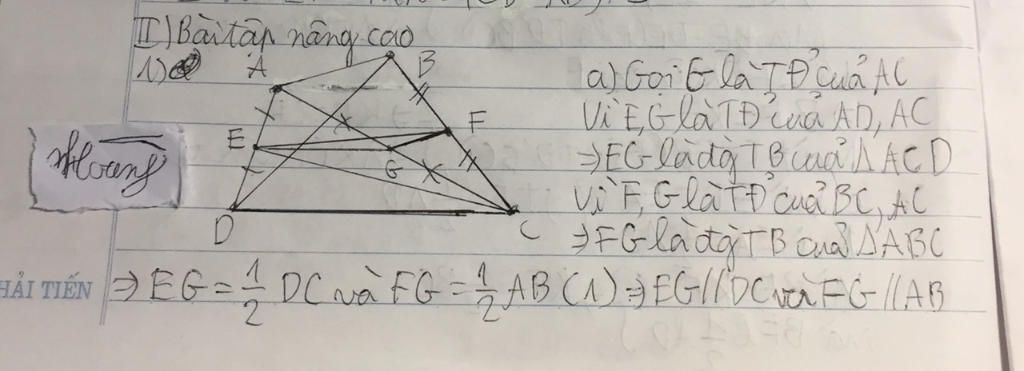 II) Bài tập nâng cao
1)
A
B
E
F
G
D
C
a) Gọi G là TĐ của AC
Vì E, G là TĐ của AD, AC
⇒ EG là đg TB của ΔACD
Vì F, G là TĐ của BC, AC
⇒ FG là đg TB của ΔABC
⇒ EG = 1/2 DC và FG = 1/2 AB (1) ⇒ EG // DC và FG // AB
Hoang
HẢI TIẾN